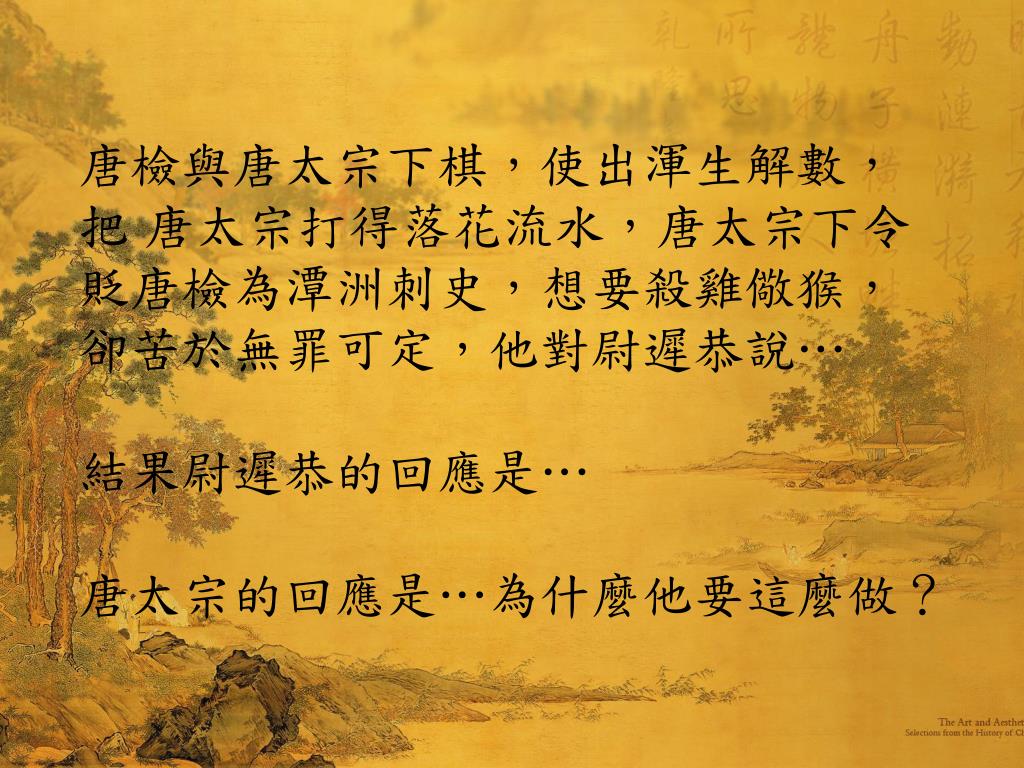 唐檢與唐太宗下棋，使出渾生解數，
把 唐太宗打得落花流水，唐太宗下令
貶唐檢為潭洲刺史，想要殺雞儆猴，
卻苦於無罪可定，他對尉遲恭說…
結果尉遲恭的回應是…
唐太宗的回應是…為什麼他要這麼做？
The Art and Aesthet
Selections from the History of Ch